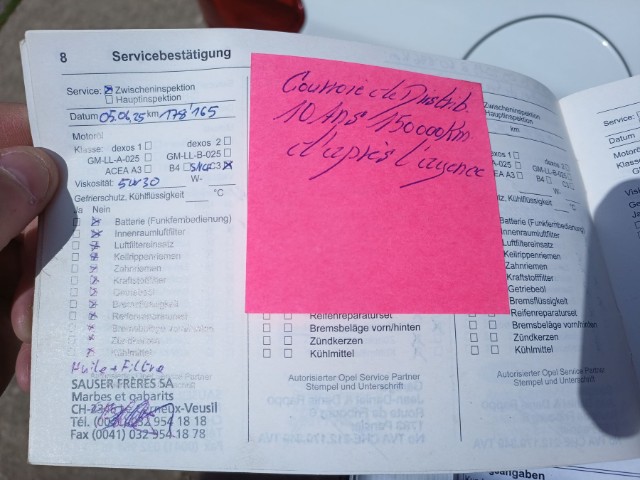 8 Servicebestätigung
Service: Zwischeninspektion
Hauptinspektion
Datum 05.06.25 km 178'165
Motoröl
Klasse: dexos 1 dexos 2
GM-LL-A-025 GM-LL-B-025
ACEA A3 B4 C3
Viskosität: 5W30 W-
Gefrierschutz, Kühlflüssigkeit °C
Ja Nein
Batterie (Funkfernbedienung)
Innenraumluftfilter
Luftfiltereinsatz
Keilrippenriemen
Zahnriemen
Kraftstofffilter
Getriebeöl
Bremsflüssigkeit
Reifenreparaturset
Bremsbeläge vorn/hinten
Zündkerzen
Kühlmittel
Huile + Filtre
SAUSER FRÈRES SA
Marbes et gabarits
Veusil
Tél. 032 954 18 18
Fax (0041) 032 954 18 78
Courroie de Distrib.
10 Ans 150000Km
d'après l'agence
Reifenreparaturset
Bremsbeläge vorn/hinten
Zündkerzen
Kühlmittel
Autorisierter Opel Service Partner
Stempel und Unterschrift
Zwischeninspektion
Hauptinspektion
km
dexos 2
GM-LL-B-025
EA A3 B4 C3
W-
schutz, Kühlflüssigkeit °C
Batterie (Funkfernbedienung)
Innenraumluftfilter
Luftfiltereinsatz
Keilrippenriemen
Zahnriemen
Kraftstofffilter
Getriebeöl
Bremsflüssigkeit
Reifenreparaturset
Bremsbeläge vorn/hinten
Zündkerzen
Kühlmittel
Autorisierter Opel Service Partner
Stempel und Unterschrift
Service:
Datum
Motoröl
Klasse